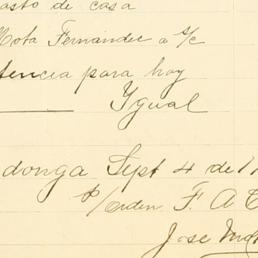 asto de casa
Mota Fernandez a s/c
tencia para hoy
Ygual
donga Sept 4 de 1
p/orden F. A. C
Jose